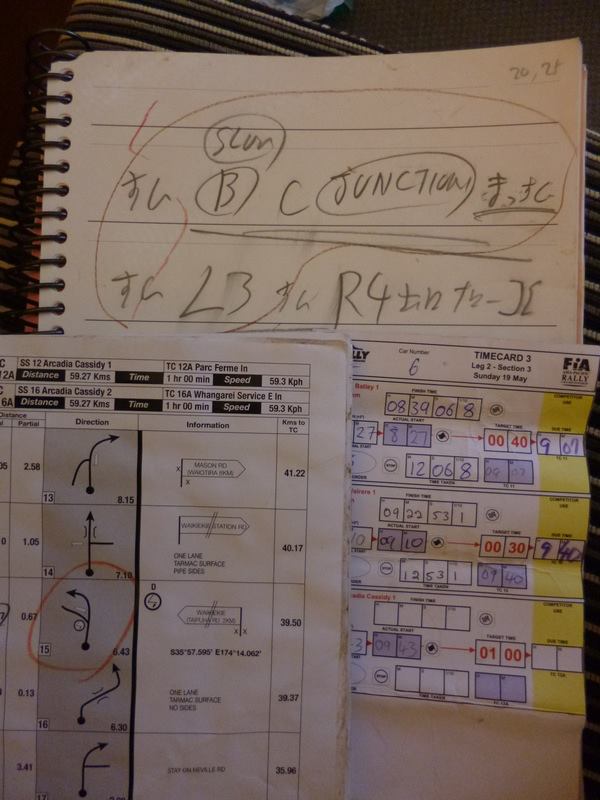 20, 25
SLOW
すぐ B C JUNCTION まっすぐ
すぐ L3 すぐ R4
SS 12 Arcadia Cassidy 1 TC 12A Parc Ferme In
12A Distance 59.27 Kms Time 1 hr 00 min Speed 59.3 Kph
SS 16 Arcadia Cassidy 2 TC 16A Whangarei Service E In
6A Distance 59.27 Kms Time 1 hr 00 min Speed 59.3 Kph
Distance
Partial Direction Information Kms to TC
2.58 13 8.15 X X MASON RD (WAIOTIRA 8KM) 41.22
1.05 14 7.10 WAIKIEKIE STATION RD 40.17
ONE LANE
TARMAC SURFACE
PIPE SIDES
0.67 15 6.43 D WAIKIEKIE (TAIPUHA RD 2KM) X X 39.50
S35°57.595' E174°14.062'
0.13 16 6.30 39.37
ONE LANE
TARMAC SURFACE
NO SIDES
3.41 17 STAY ON NEVILLE RD 35.96
RALLY Car Number 6 TIMECARD 3
Leg 2 - Section 3
Sunday 19 May
FIA
RALLY
COMPETITOR USE
Batley 1 FINISH TIME
08 39 06 8
ACTUAL START TARGET TIME DUE TIME
27 8 27 00 40 9 07
TC 11
STOP 12 06 8 09 07
TIME TAKEN TC 11
FINISH TIME COMPETITOR USE
09 22 53 1
ACTUAL START TARGET TIME DUE TIME
10 09 10 00 30 9 40
TC 12
STOP 12 53 1 09 40
TIME TAKEN TC 12
adia Cassidy 1 FINISH TIME COMPETITOR USE
ACTUAL START TARGET TIME DUE TIME
09 43 01 00
TC 12A
STOP
TIME TAKEN TC 12A